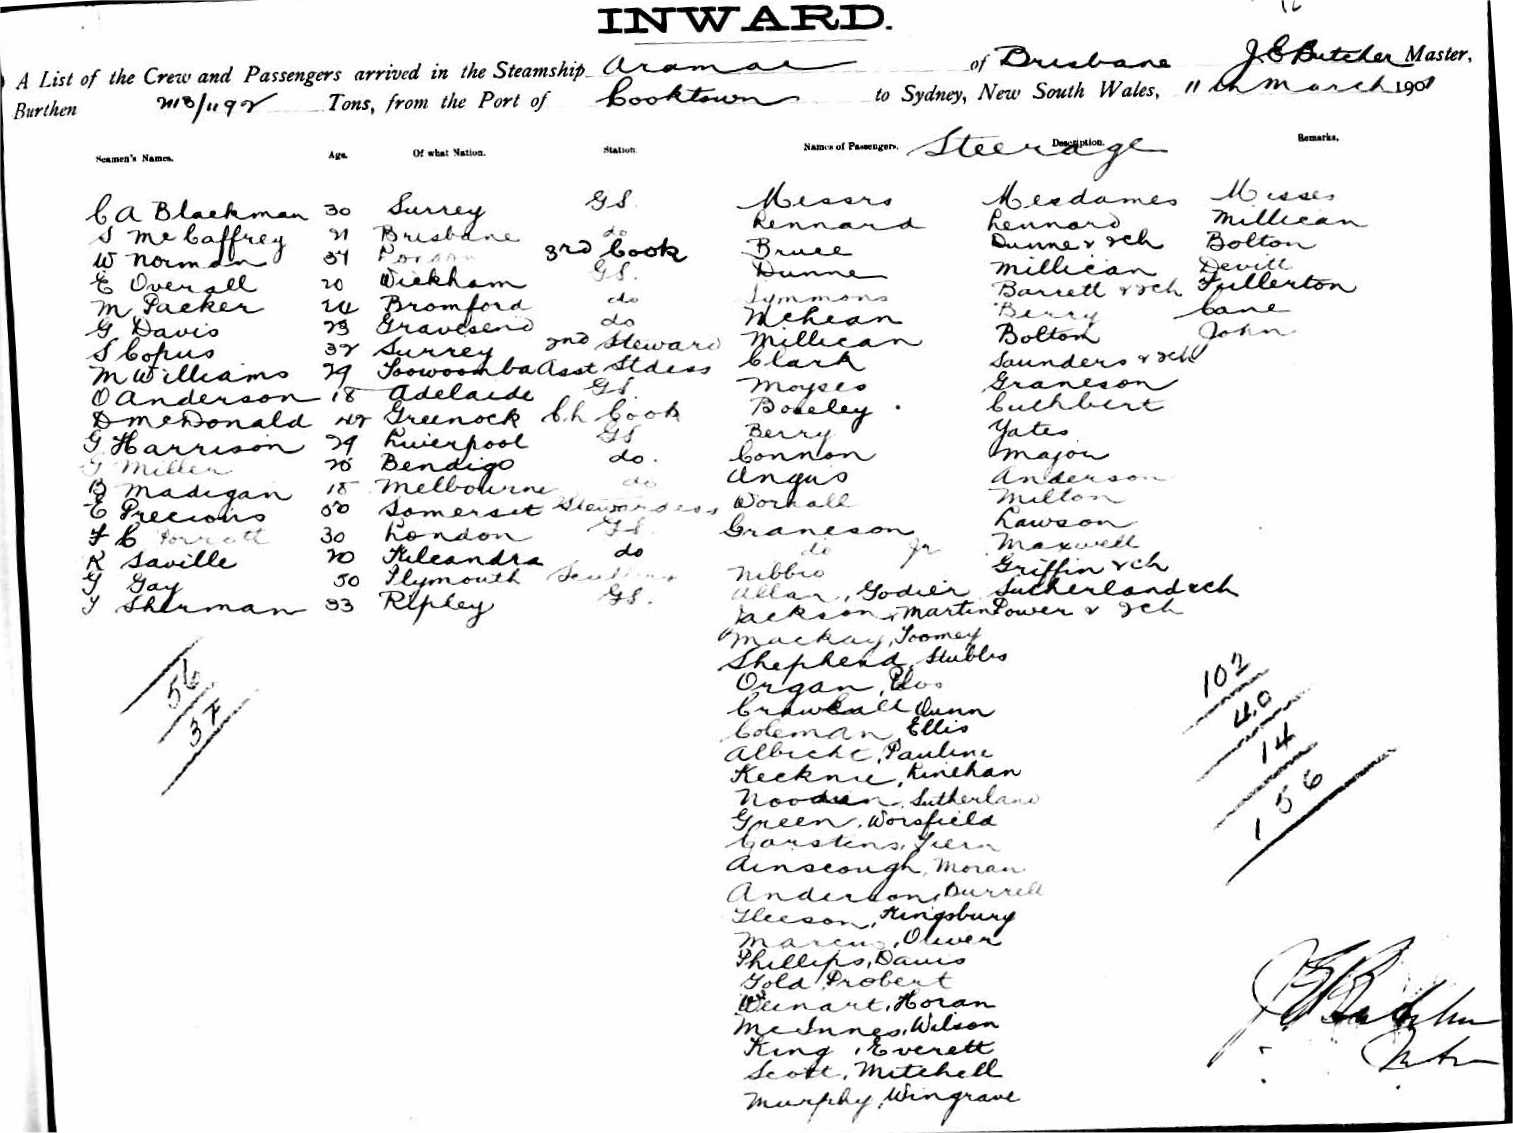 INWARD.
A List of the Crew and Passengers arrived in the Steamship Aramac of Brisbane J E Butcher Master,
Burthen 2113/1192 Tons, from the Port of Cooktown to Sydney, New South Wales, 11th March 1901
Seamen's Names. Age. Of what Nation. Station. Names of Passengers. Steerage Description. Remarks.
C A Blackman 30 Surrey GS. Messrs Mesdames Misses
S McCaffrey 21 Brisbane do Lennard Lennard Millican
W Norman 37 3rd Cook Bruce Dunne & 2ch Bolton
E Overall 20 Wickham GS. Dunne Millican Devitt
M Packer 24 Bromford do Symmons Barrett & 2ch Fullerton
G Davis 23 Gravesend do McLean Berry Cane
S Copus 32 Surrey 2nd Steward Millican Bolton John
M Williams 29 Toowoomba Asst Stdess Clark Saunders & 2ch
O Anderson 18 Adelaide GS. Moyses Graneson
D McDonald 42 Greenock Ch Cook Boseley Cuthbert
G Harrison 29 Liverpool GS Berry Yates
G Miller 20 Bendigo do. Connon Major
B Madigan 18 Melbourne do Angus Anderson
E Precious 50 Somerset Stewardess Worrall Milton
F C 30 London GS. Graneson Lawson
R Saville 20 Kileandra do do Jr Maxwell
G Gay 50 Plymouth Nibbio Griffin & ch
T Sherman 33 Ripley GS. Allan, Godier Sutherland & ch
Jackson, Martin Power & 2ch
Mackay, Toomey
Shepherd, Stubbs
Organ,
Crawcall Dunn
Coleman, Ellis
Albicht, Pauline
Kecknie, Linehan
Noonan, Sutherland
Green, Worsfield
Carstens, Tiern
Ainscough, Moran
Anderson, Burrell
Gleeson, Kingsbury
Marcus, Oliver
Phillips, Davis
Gold Probert
Weinart, Horan
McInnes, Wilson
King, Everett
Scott, Mitchell
Murphy, Wingrave
56
37
102
40
14
156
J E Butcher